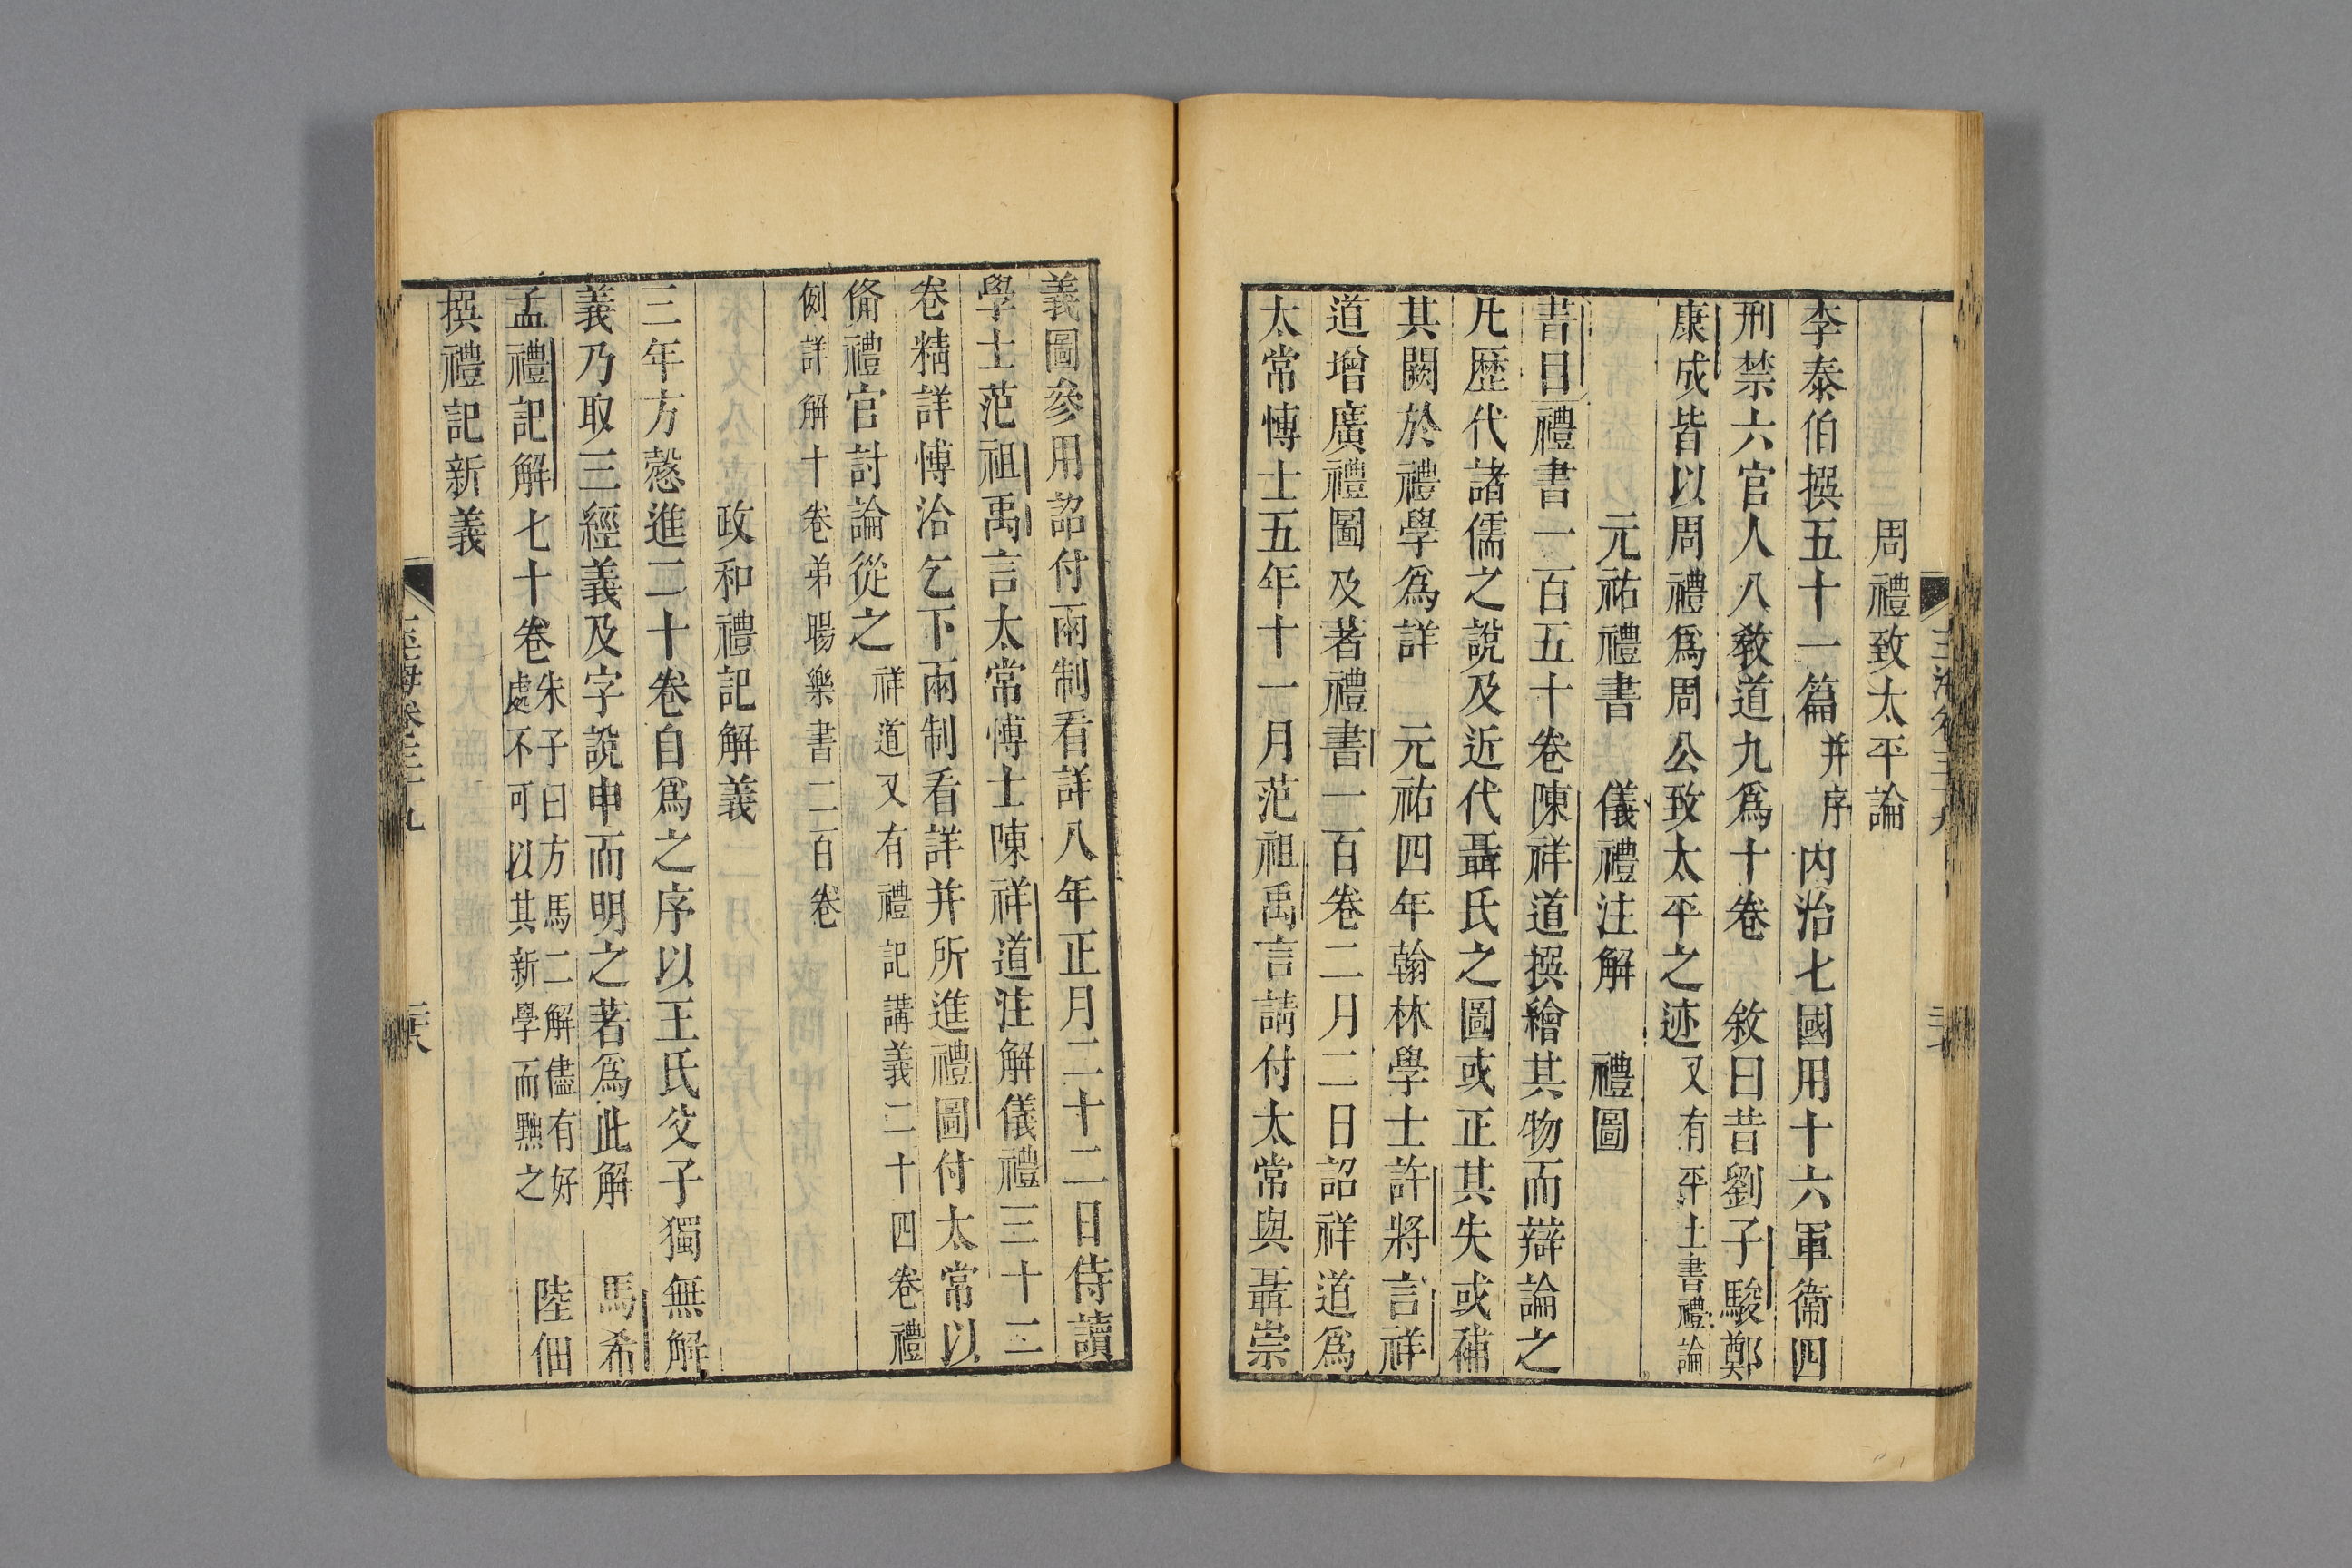 周禮致太平論
李泰伯撰五十一篇并序内治七國用十六軍衛四
刑禁六官人八敎道九爲十卷　敘曰昔劉子駿鄭
康成皆以周禮爲周公致太平之迹又有平土書禮論
元祐禮書　儀禮注解　禮圖
書目禮書一百五十卷陳祥道撰繪其物而辯論之
凡歷代諸儒之說及近代聶氏之圖或正其失或補
其闕於禮學爲詳　元祐四年翰林學士許將言祥
道增廣禮圖及著禮書一百卷二月二日詔祥道爲
太常愽士五年十一月范祖禹言請付太常與聶崇
義圖參用詔付兩制看詳八年正月二十二日侍讀
學士范祖禹言太常愽士陳祥道注解儀禮三十二
卷精詳愽洽乞下兩制看詳并所進禮圖付太常以
備禮官討論從之祥道又有禮記講義二十四卷禮
例詳解十卷弟暘樂書二百卷
政和禮記解義
三年方慤進二十卷自爲之序以王氏父子獨無解
義乃取三經義及字說申而明之著爲此解　馬希
孟禮記解七十卷朱子曰方馬二解儘有好
處不可以其新學而黜之
陸佃
撰禮記新義
玉海卷三十九
三十七
玉海卷三十九
三十八